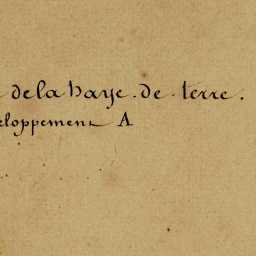 de la haye. de terre.
eloppement A